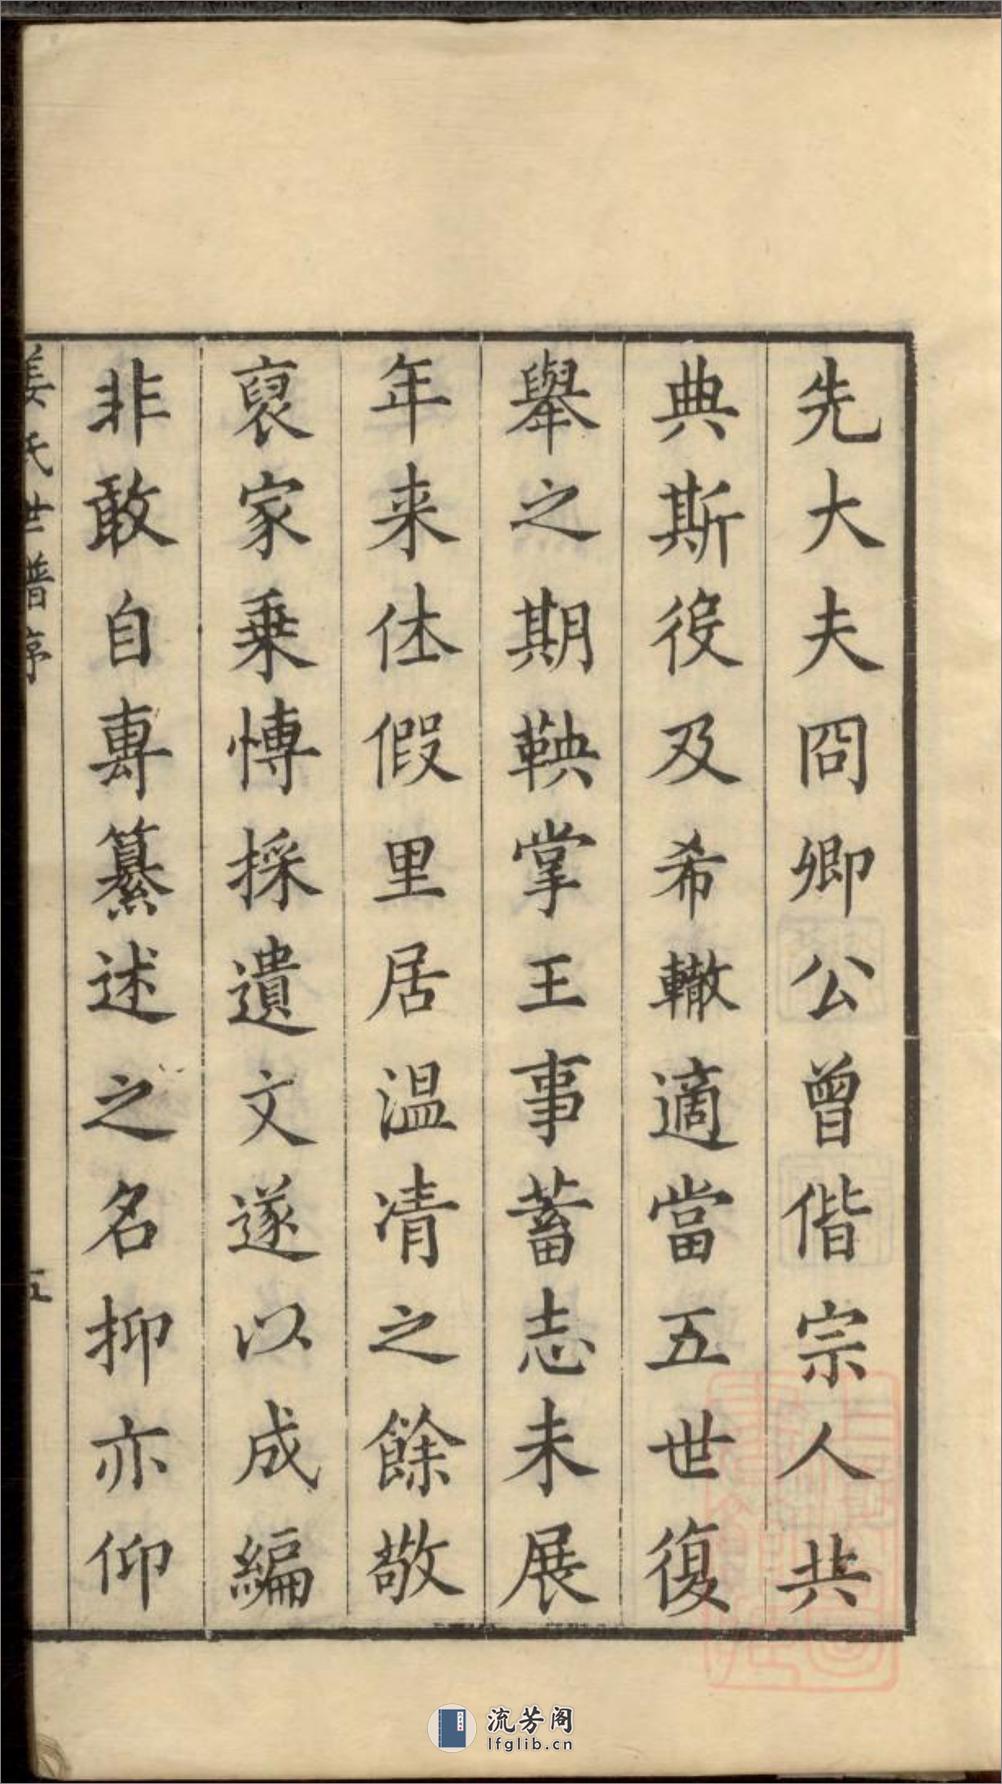 先大夫冏卿公曾偕宗人共
典斯役及希轍適當五世復
舉之期鞅掌王事蓄志未展
年来休假里居温凊之餘敬
裒家乗愽採遺文遂以成編
非敢自專纂述之名抑亦仰
姜氏世譜序
五
流芳阁
lfglib.cn